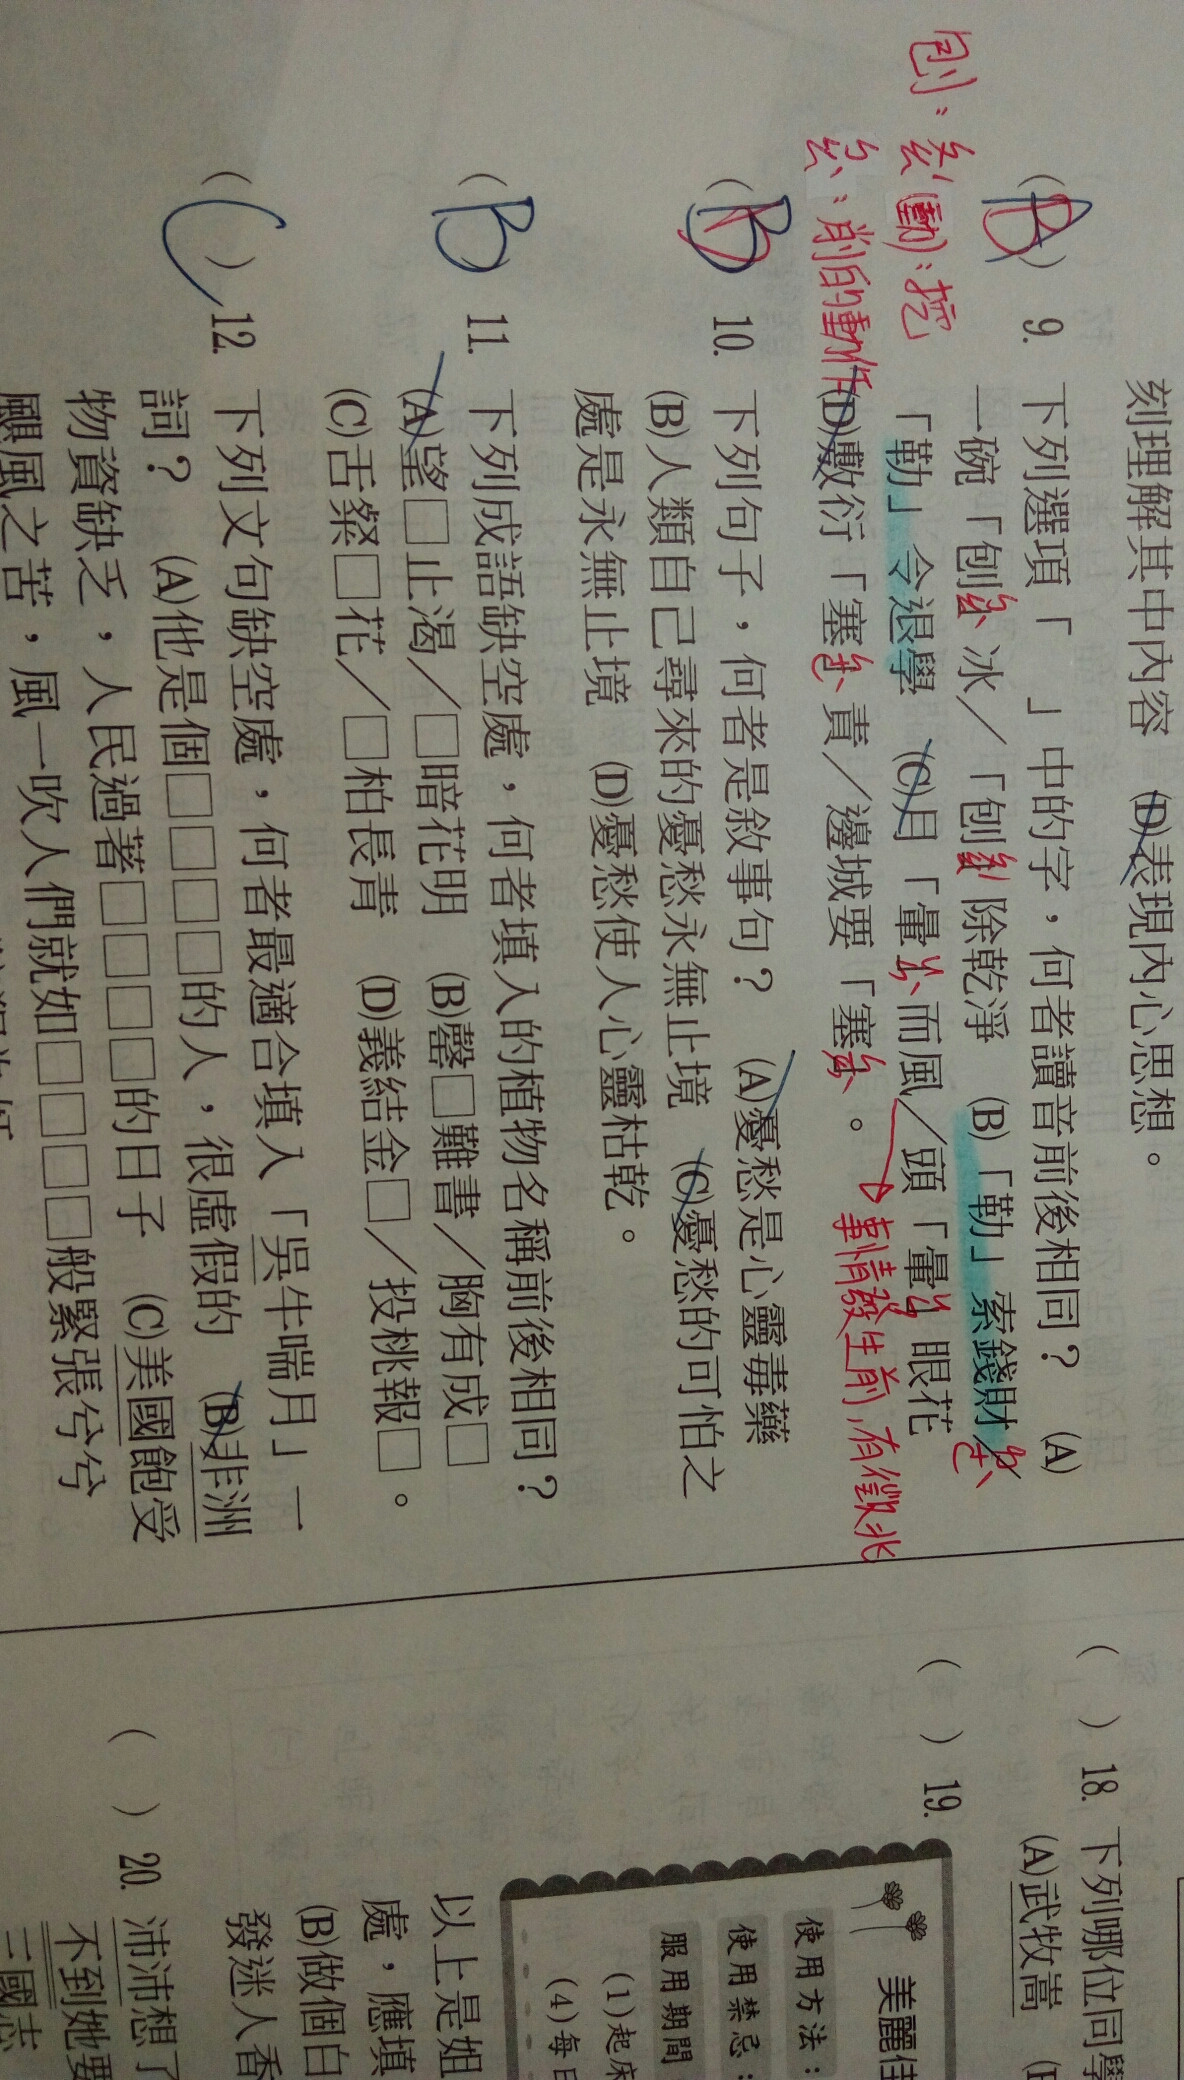 刻理解其中內容 (D)表現內心思想。
(B) 9. 下列選項「 」中的字，何者讀音前後相同？ (A)
一碗「刨ㄅㄠˋ」冰／「刨ㄆㄠˊ」除乾淨 (B)「勒」索錢財ㄌㄜˋ
「勒」令退學 (C)月「暈ㄩㄣˋ」而風／頭「暈ㄩㄣ」眼花
(D)敷衍「塞ㄙㄜˋ」責／邊城要「塞ㄙㄞˋ」。
刨：ㄆㄠˊ(動)：挖
ㄅㄠˋ：削的動作
事情發生前，有徵兆
10. 下列句子，何者是敘事句？ (A)憂愁是心靈毒藥
(B)人類自己尋來的憂愁永無止境 (C)憂愁的可怕之
處是永無止境 (D)憂愁使人心靈枯乾。
(B) 11. 下列成語缺空處，何者填入的植物名稱前後相同？
(A)望□止渴／□暗花明 (B)罄□難書／胸有成□
(C)舌粲□花／□柏長青 (D)義結金□／投桃報□。
(C) 12. 下列文句缺空處，何者最適合填入「吳牛喘月」一
詞？ (A)他是個□□□□的人，很虛假的 (B)非洲
物資缺乏，人民過著□□□□的日子 (C)美國飽受
颶風之苦，風一吹人們就如□□□□般緊張兮兮
( ) 18. 下列哪位同學
(A)武牧嵩
( ) 19.
美麗佳
使用方法：
使用禁忌：
服用期間
(1)起床
(4)每日
以上是姐
處，應填
(B)做個白
發迷人香
( ) 20. 沛沛想了
不到她要
三國志